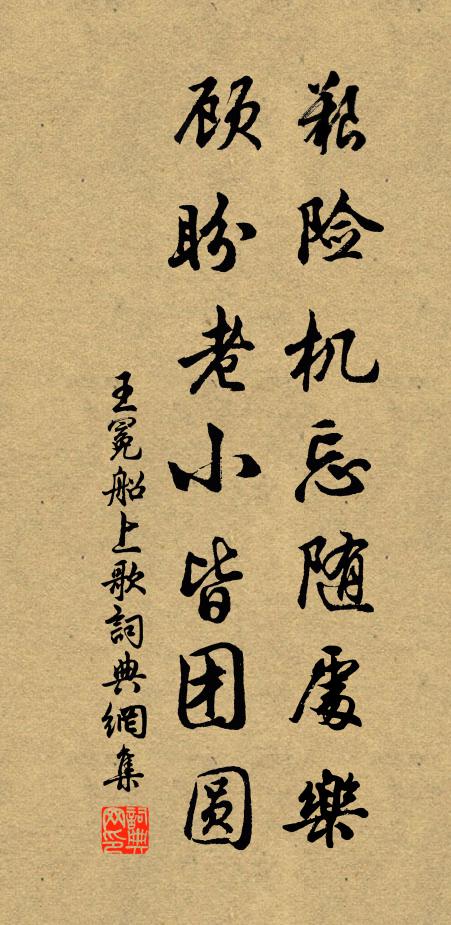 艰险机忘随處樂
顾盼老小皆团圆
王冕船上歌詞典網集
詞典网印